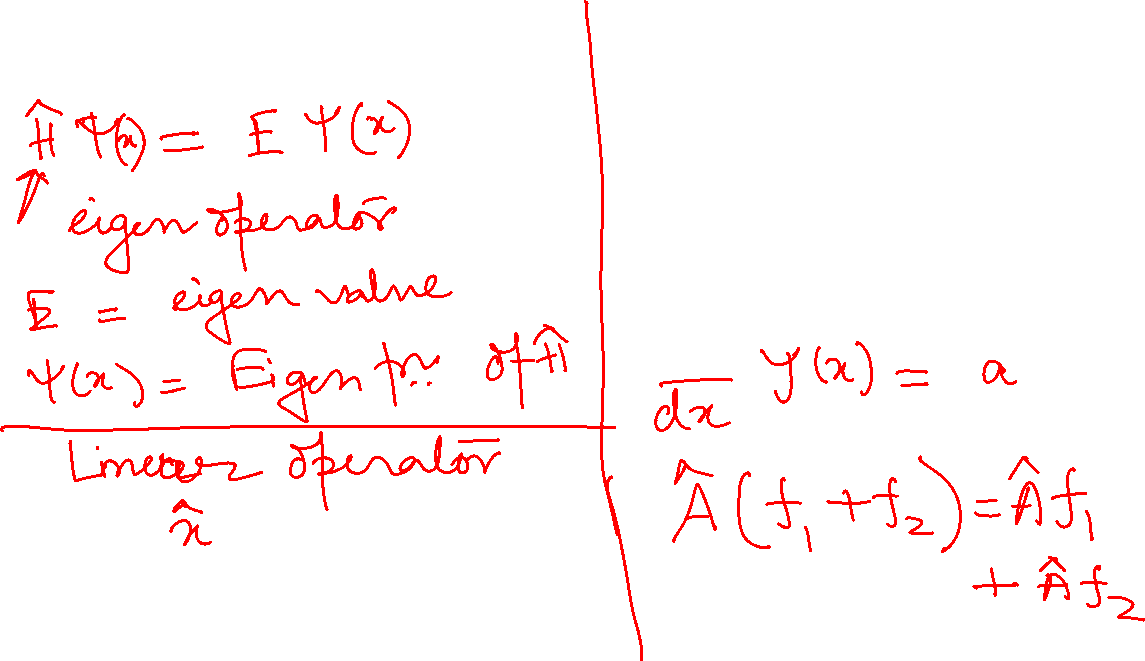 Ĥ Ψ(x) = E Ψ(x)
eigen operator
E = eigen value
Ψ(x) = Eigen fn. of Ĥ
Linear operator
x̂
dx y(x) = a
Â(f₁ + f₂) = Âf₁
+ Âf₂